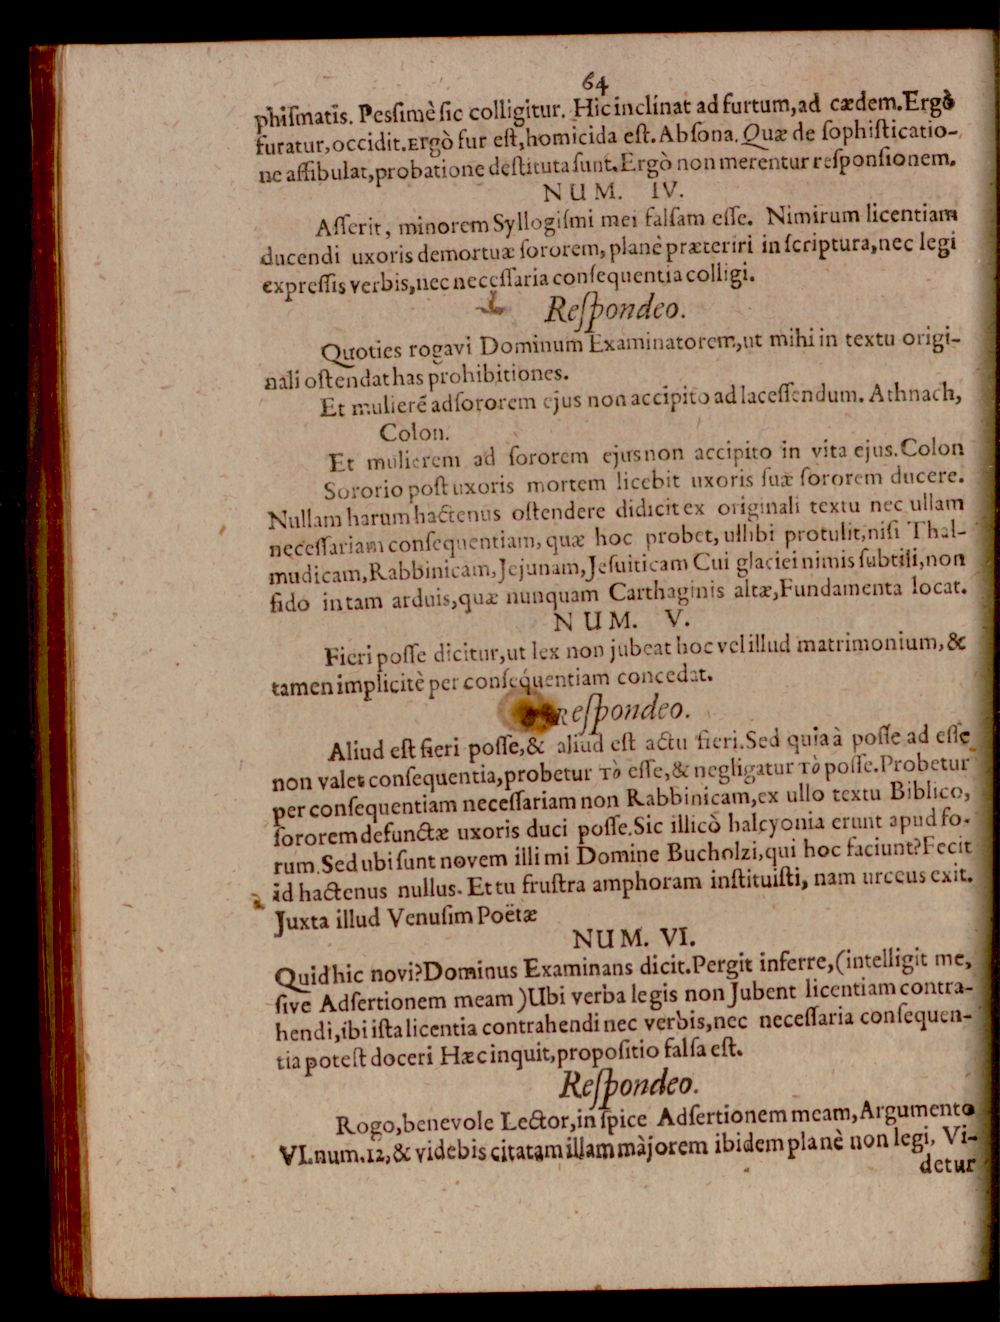 64
phiſmatis. Pesſimè ſic colligitur. Hic inclinat ad furtum, ad cædem. Ergò
furatur, occidit. Ergò fur eſt, homicida eſt. Abſona. Quæ de ſophiſticatio-
ne affibulat, probatione deſtituta ſunt. Ergò non merentur reſponſionem.
NUM. IV.
Aſſerit, minorem Syllogiſmi mei falſam eſſe. Nimirum licentiam
ducendi uxoris demortuæ ſororem, planè præteriri in ſcriptura, nec legi
expreſſis verbis, nec neceſſaria conſequentia colligi.
Reſpondeo.
Quoties rogavi Dominum Examinatorem, ut mihi in textu origi-
nali oſtendat has prohibitiones.
Et mulierē ad ſororem ejus non accipito ad laceſſendum. Athnach,
Colon.
Et mulierem ad ſororem ejus non accipito in vita ejus. Colon
Sororio poſt uxoris mortem licebit uxoris ſuæ ſororem ducere.
Nullam harum hactenus oſtendere didicit ex originali textu nec ullam
neceſſariam conſequentiam, quæ hoc probet, ullibi protulit, niſi Thal-
mudicam, Rabbinicam, Jejunam, Jeſuiticam Cui glaciei nimis ſubtili, non
fido in tam arduis, quæ nunquam Carthaginis altæ, Fundamenta locat.
NUM. V.
Fieri poſſe dicitur, ut lex non jubeat hoc vel illud matrimonium, &
tamen implicitè per conſequentiam concedat.
Reſpondeo.
Aliud eſt fieri poſſe, & aliud eſt actu fieri. Sed quia à poſſe ad eſſe
non valet conſequentia, probetur τὸ eſſe, & negligatur τὸ poſſe. Probetur
per conſequentiam neceſſariam non Rabbinicam, ex ullo textu Biblico,
ſororem defunctæ uxoris duci poſſe. Sic illicò halcyonia erunt apud fo-
rum. Sed ubi ſunt novem illi mi Domine Bucholzi, qui hoc faciunt? Fecit
id hactenus nullus. Et tu fruſtra amphoram inſtituiſti, nam urceus exit.
Juxta illud Venuſim Poëtæ
NUM. VI.
Quid hic novi? Dominus Examinans dicit. Pergit inferre, (intelligit me,
ſive Adſertionem meam) Ubi verba legis non Jubent licentiam contra-
hendi, ibi iſta licentia contrahendi nec verbis, nec neceſſaria conſequen-
tia poteſt doceri Hæc inquit, propoſitio falſa eſt.
Reſpondeo.
Rogo, benevole Lector, in ſpice Adſertionem meam, Argumento
VI. num. 12, & videbis citatam illam màjorem ibidem planè non legi, Vi-
detur